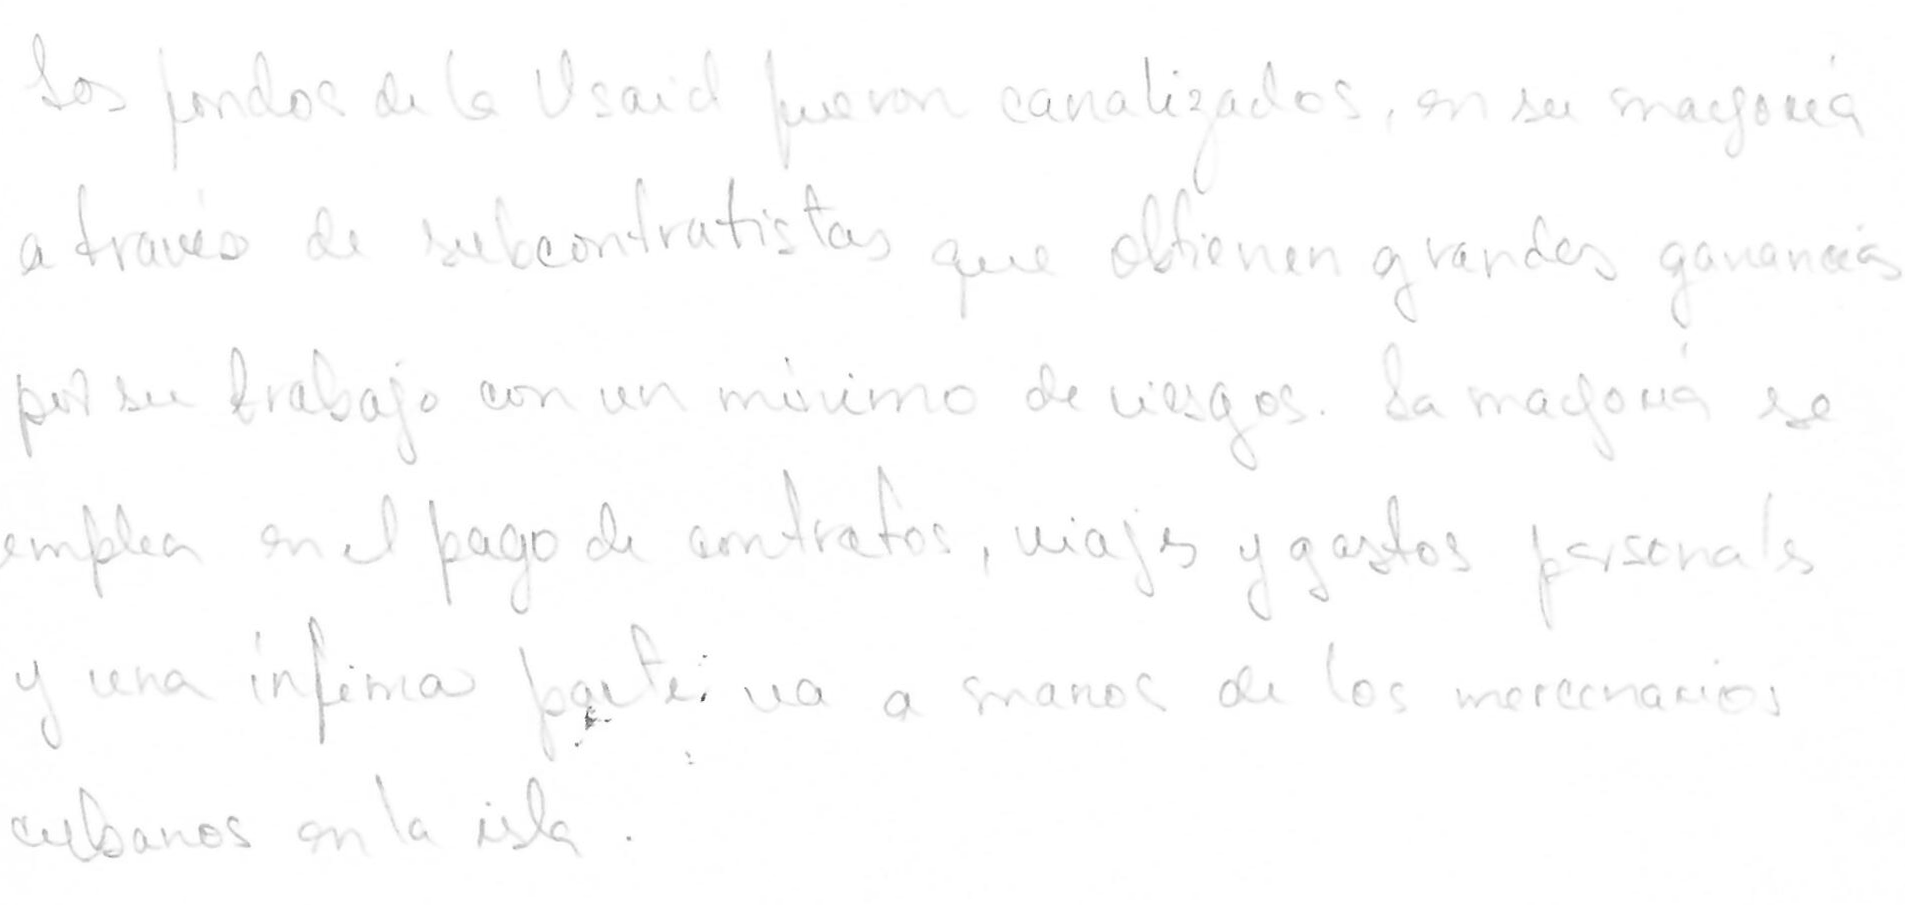 Los fondos de la Usaid fueron canalizados, en su mayoría
a través de subcontratistas que obtienen grandes ganancias
por su trabajo con un mínimo de riesgos. La mayoría se
emplea en el pago de contratos, viajes y gastos personales
y una ínfima parte va a manos de los mercenarios
cubanos en la isla.